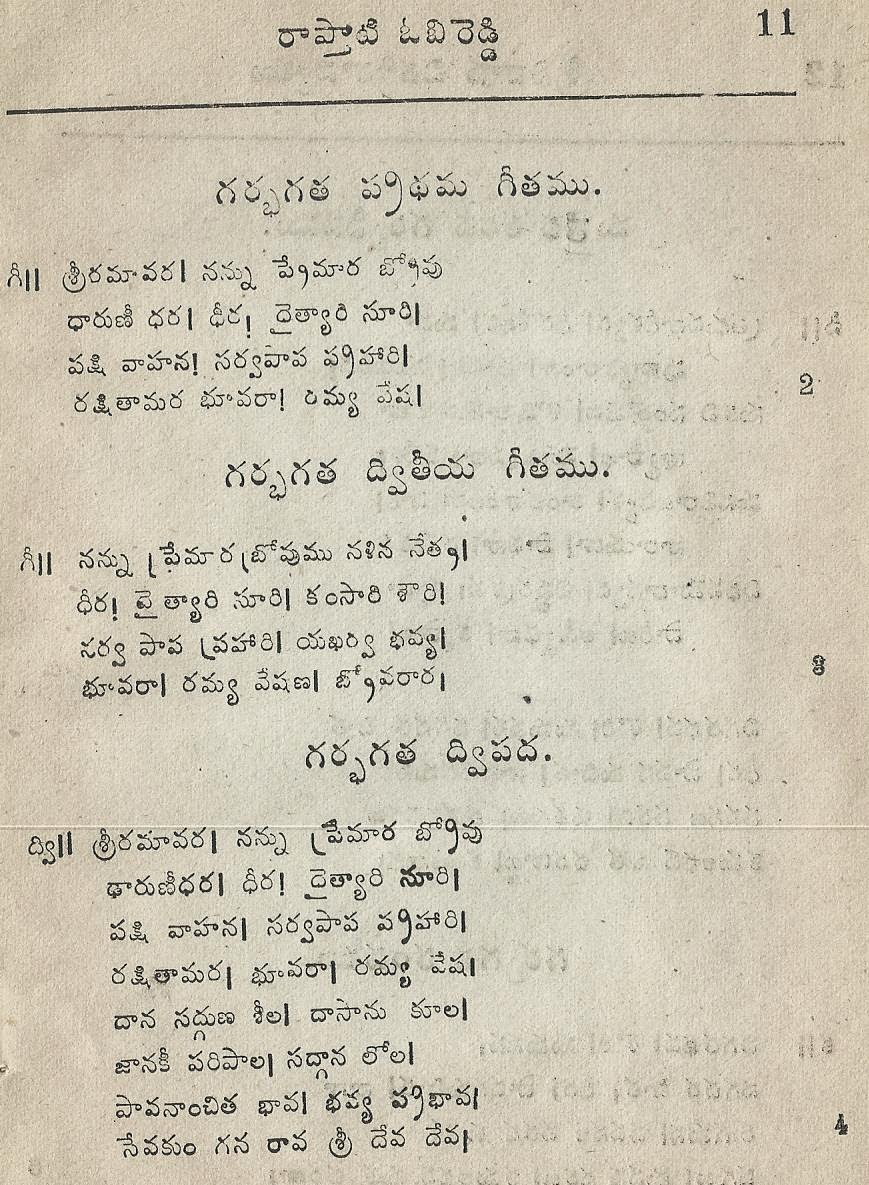 రాప్తాటి ఓబిరెడ్డి 11
గర్భగత ప్రథమ గీతము.
గీ॥ శ్రీరమావర। నన్ను ప్రేమార బ్రోవు
ధారుణీ ధర। ధీర! దైత్యారి సూరి।
పక్షి వాహన! సర్వపాప ప్రహారి।
రక్షితామర భూవరా! రమ్య వేష। 2
గర్భగత ద్వితీయ గీతము.
గీ॥ నన్ను ప్రేమార బ్రోవుము నళిన నేత్ర।
ధీర! దైత్యారి సూరి। కంసారి శౌరి!
సర్వ పాప ప్రహారి। యఖర్వ భవ్య।
భూవరా। రమ్య వేషణ। బ్రోవరార। 3
గర్భగత ద్విపద.
ద్వి॥ శ్రీరమావర। నన్ను ప్రేమార బ్రోవు
ధారుణీధర। ధీర! దైత్యారి సూరి।
పక్షి వాహన। సర్వపాప ప్రహారి।
రక్షితామర। భూవరా। రమ్య వేష।
దాన సద్గుణ శీల। దాసాను కూల।
జానకీ పరిపాల। సద్గాన లోల।
పావనాంచిత భావ। భవ్య ప్రభావ।
సేవకుం గన రావ శ్రీ దేవ దేవ। 4